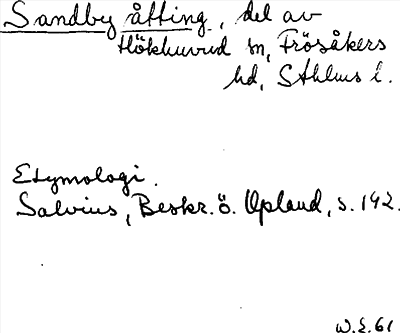 Sandby åtting, del av
Hökhuvud sn, Frösåkers
hd, Sthlms l.
Etymologi.
Salvius, Beskr. ö. Upland, s. 142.
W.E. 61